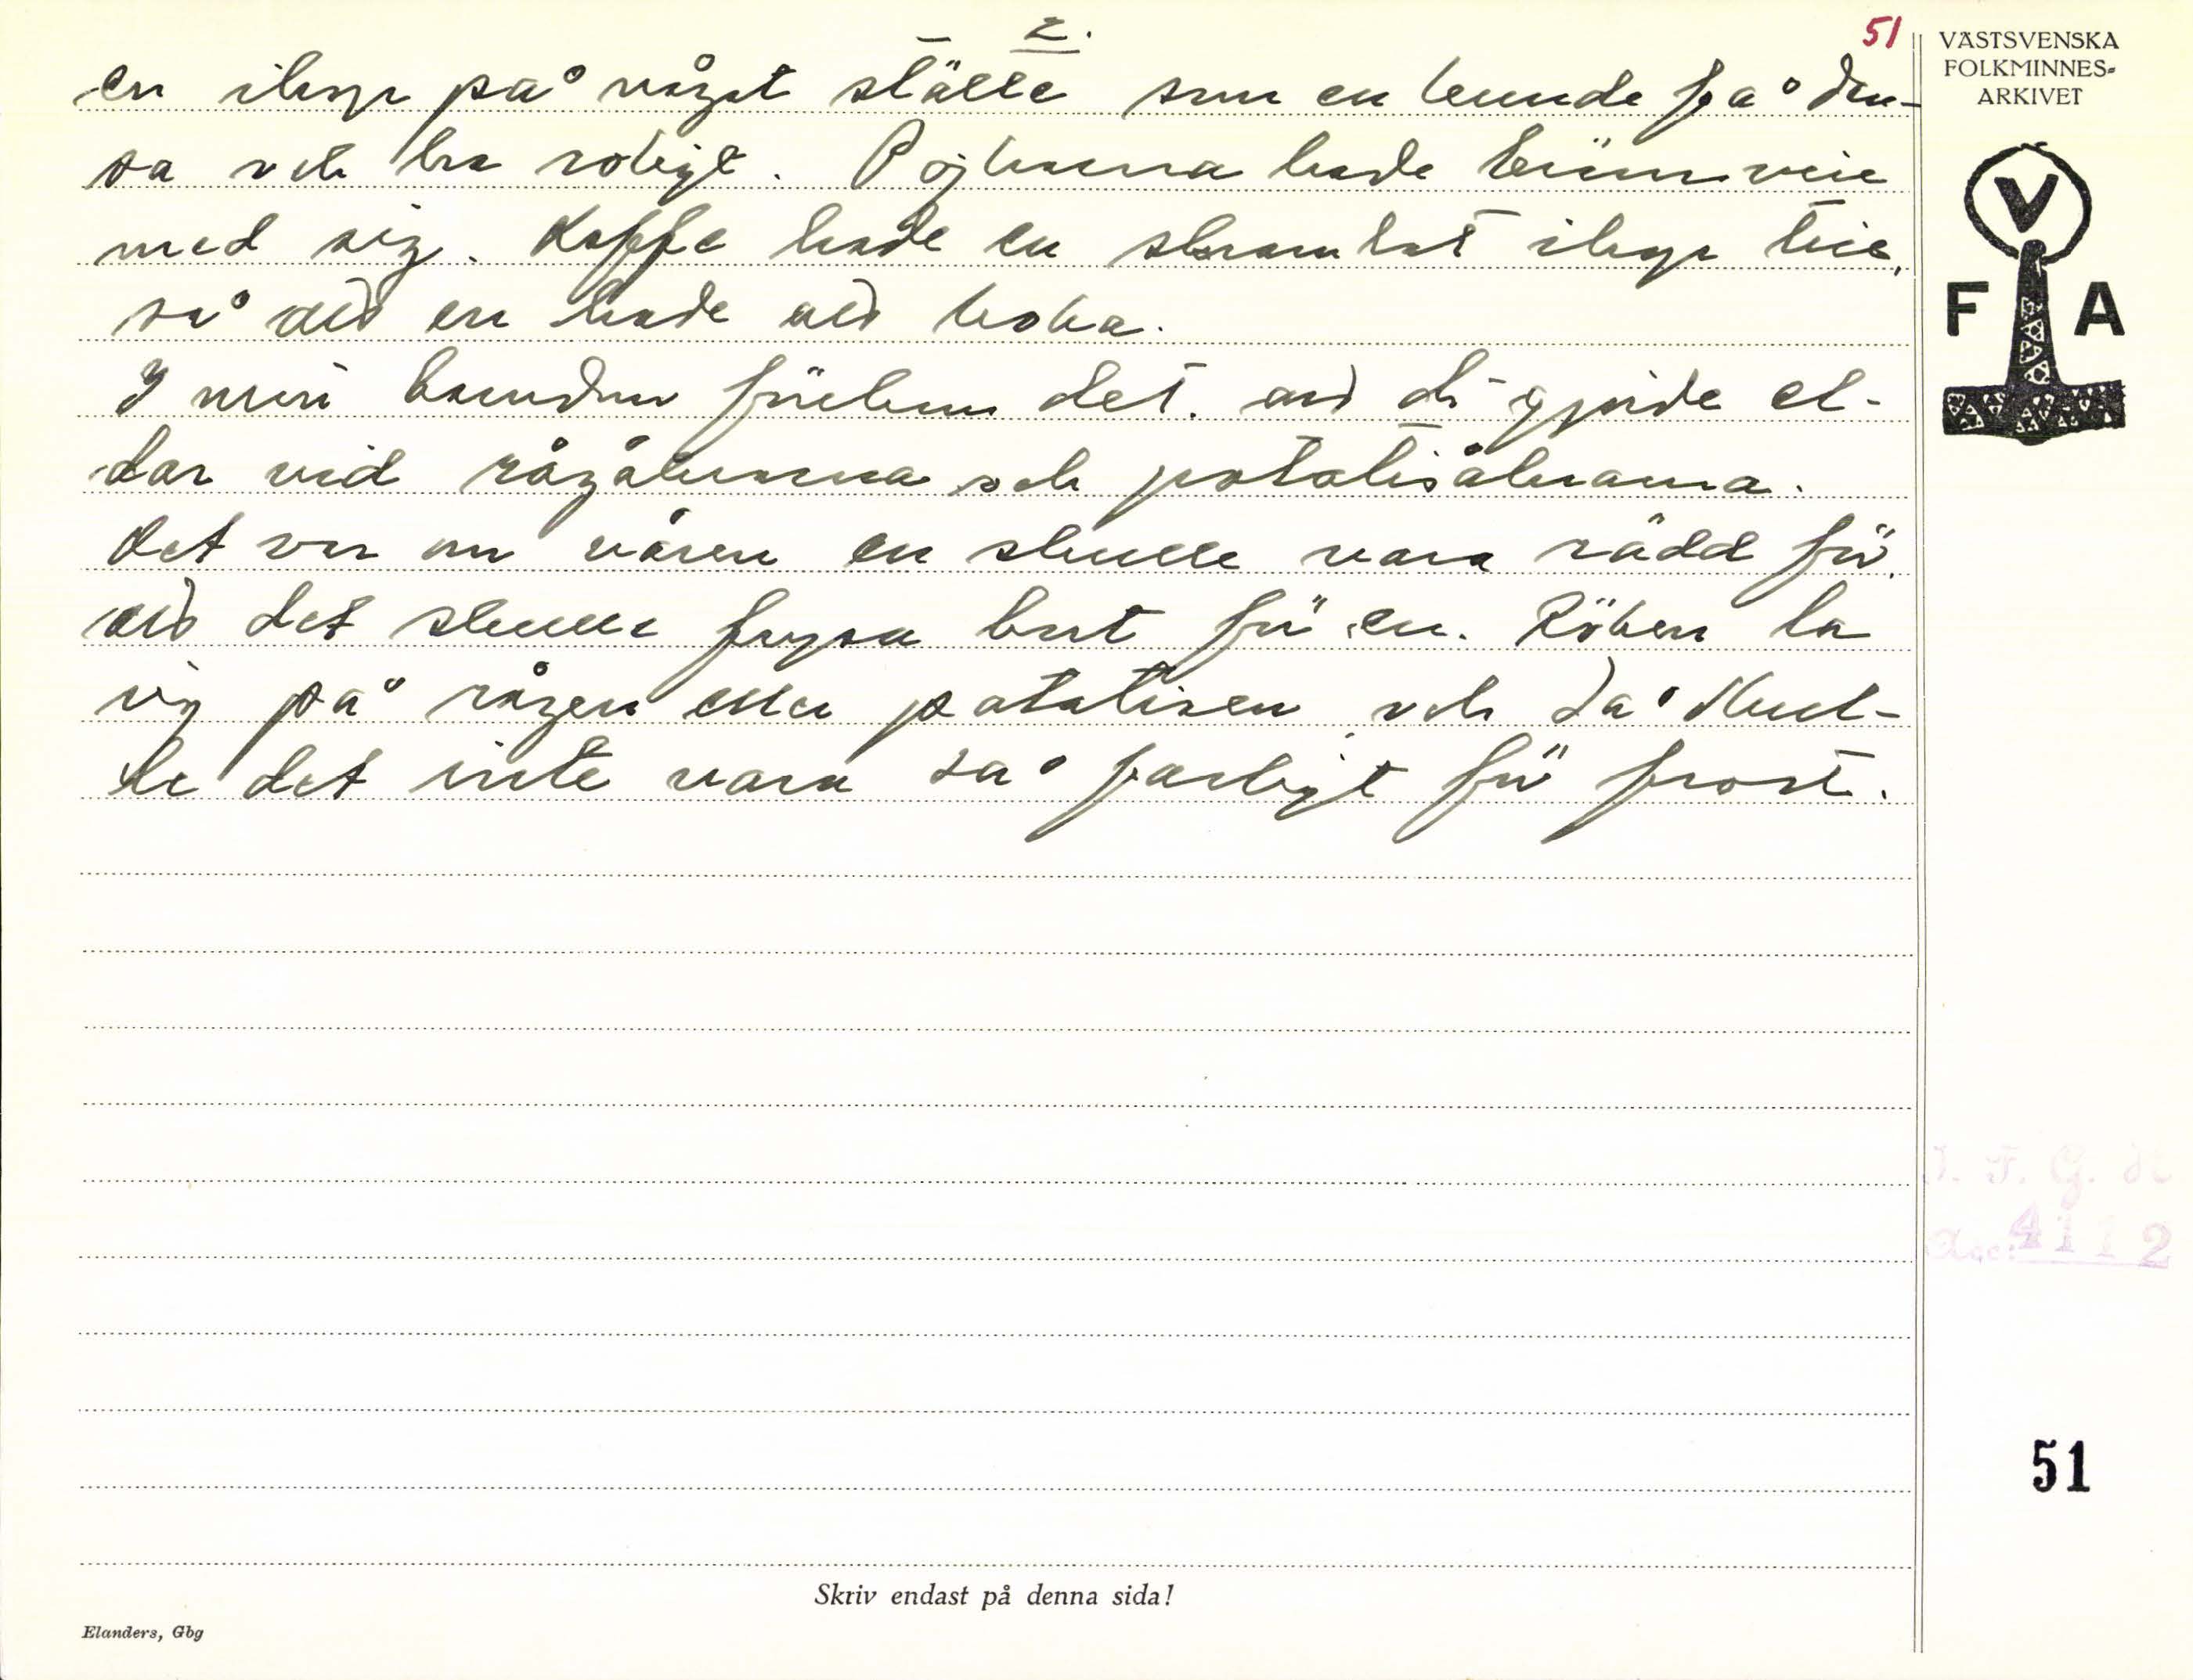 2.
51
en ihop på något ställe som en kunde få dan-
sa och ha roligt. Pojkarna hade brännvin
med sig. Kaffe hade en skramlat ihop till,
så att en hade att koka.
I min barndom förekom det att di gjorde el-
dar vid rågåkrarna och potatisåkrarna.
Det var om våren en skulle vara rädd för
att det skulle frysa bort för en. Röken la
sig på rågen eller potatisen och då skul-
le det inte vara så farligt för frost.
VÄSTSVENSKA
FOLKMINNES-
ARKIVET
V
F A
I. F. G. H
Acc: 4112
51
Skriv endast på denna sida!
Elanders, Gbg